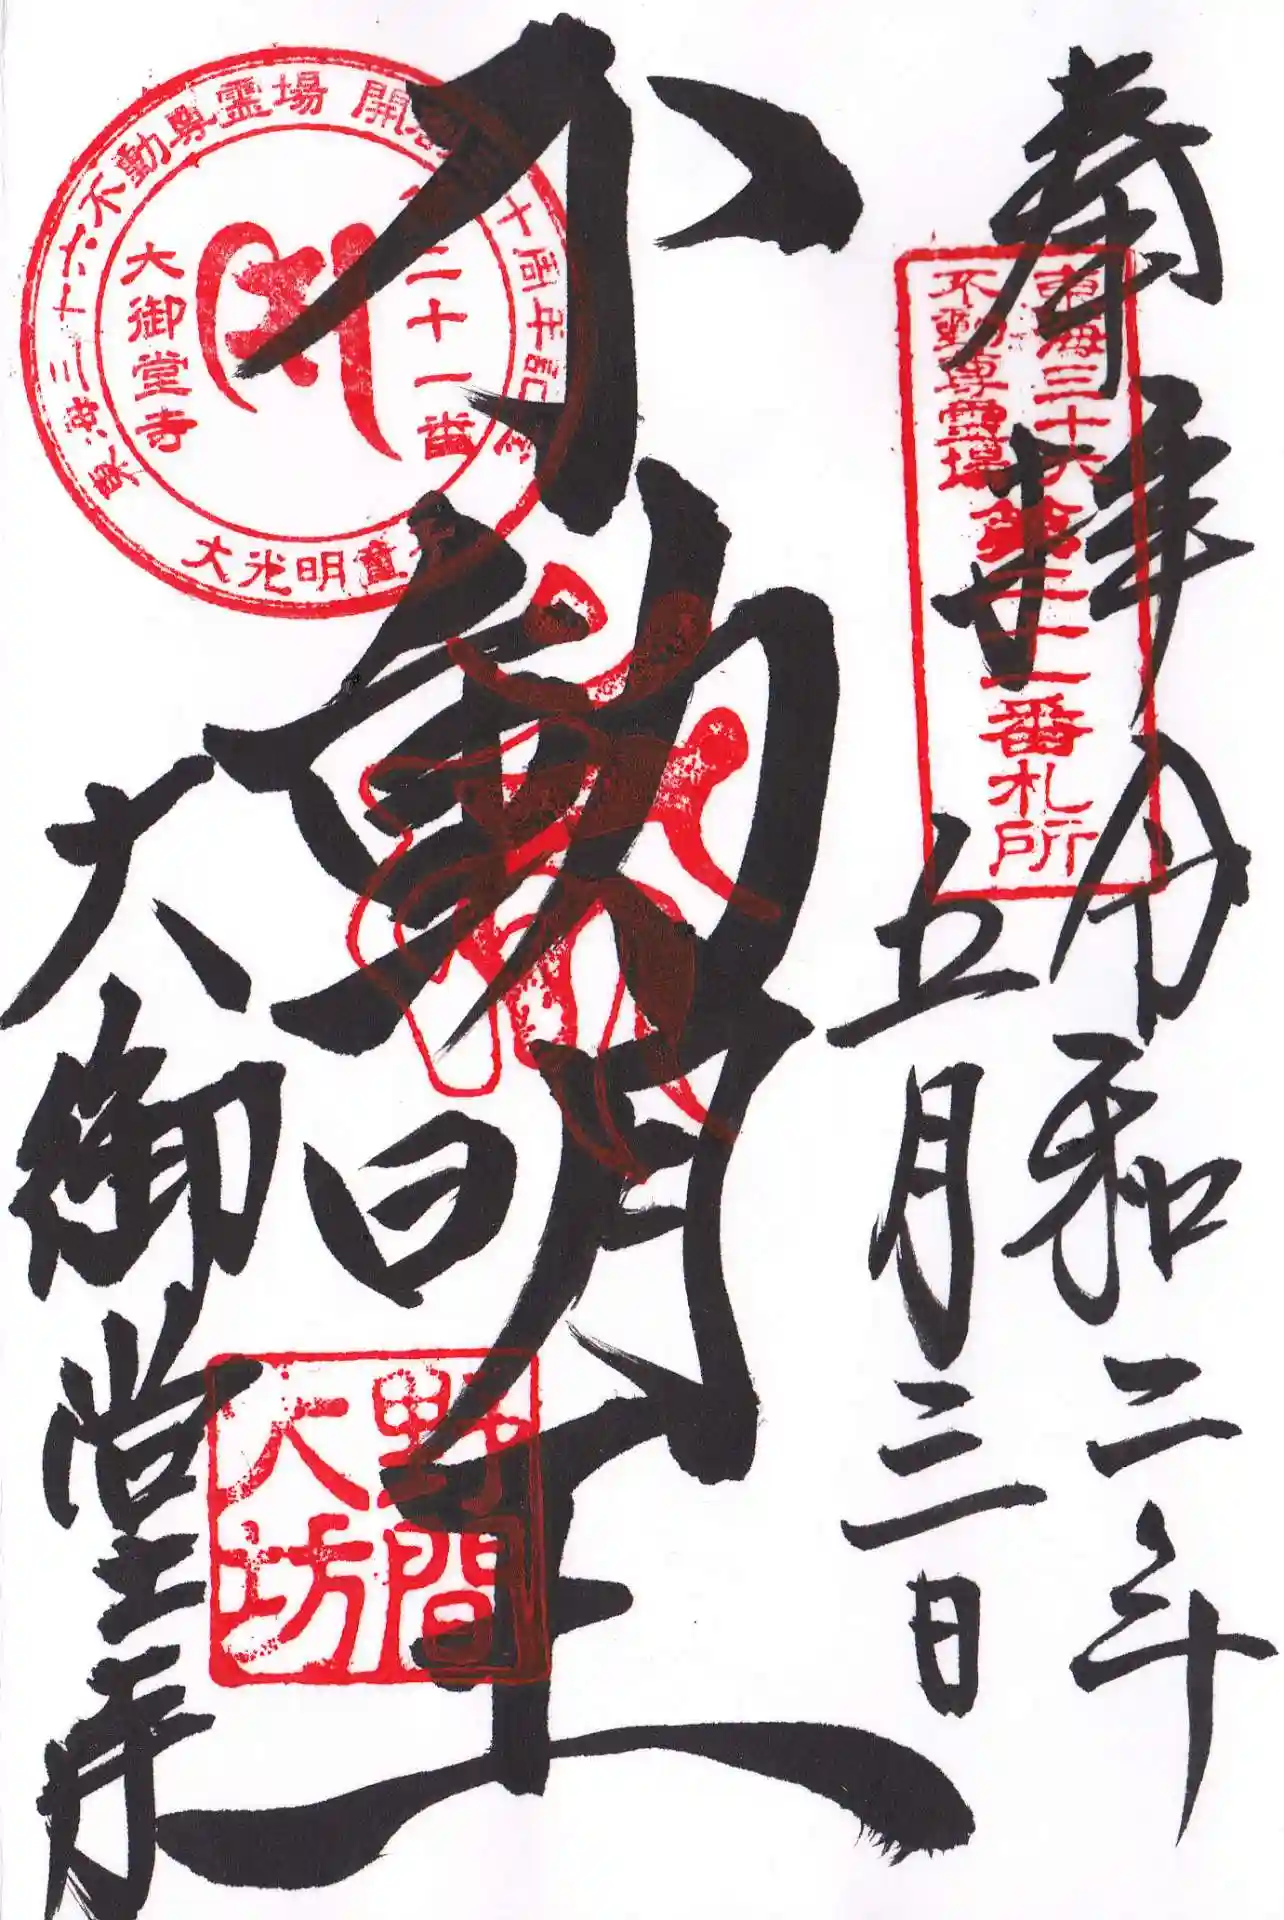 奉拝
令和二年
五月三日
東海三十六
不動尊霊場
第二十一番札所
不動明王
大御堂寺
東海三十六不動尊霊場
二十一番
大御堂寺
大光明童子
野間
大坊